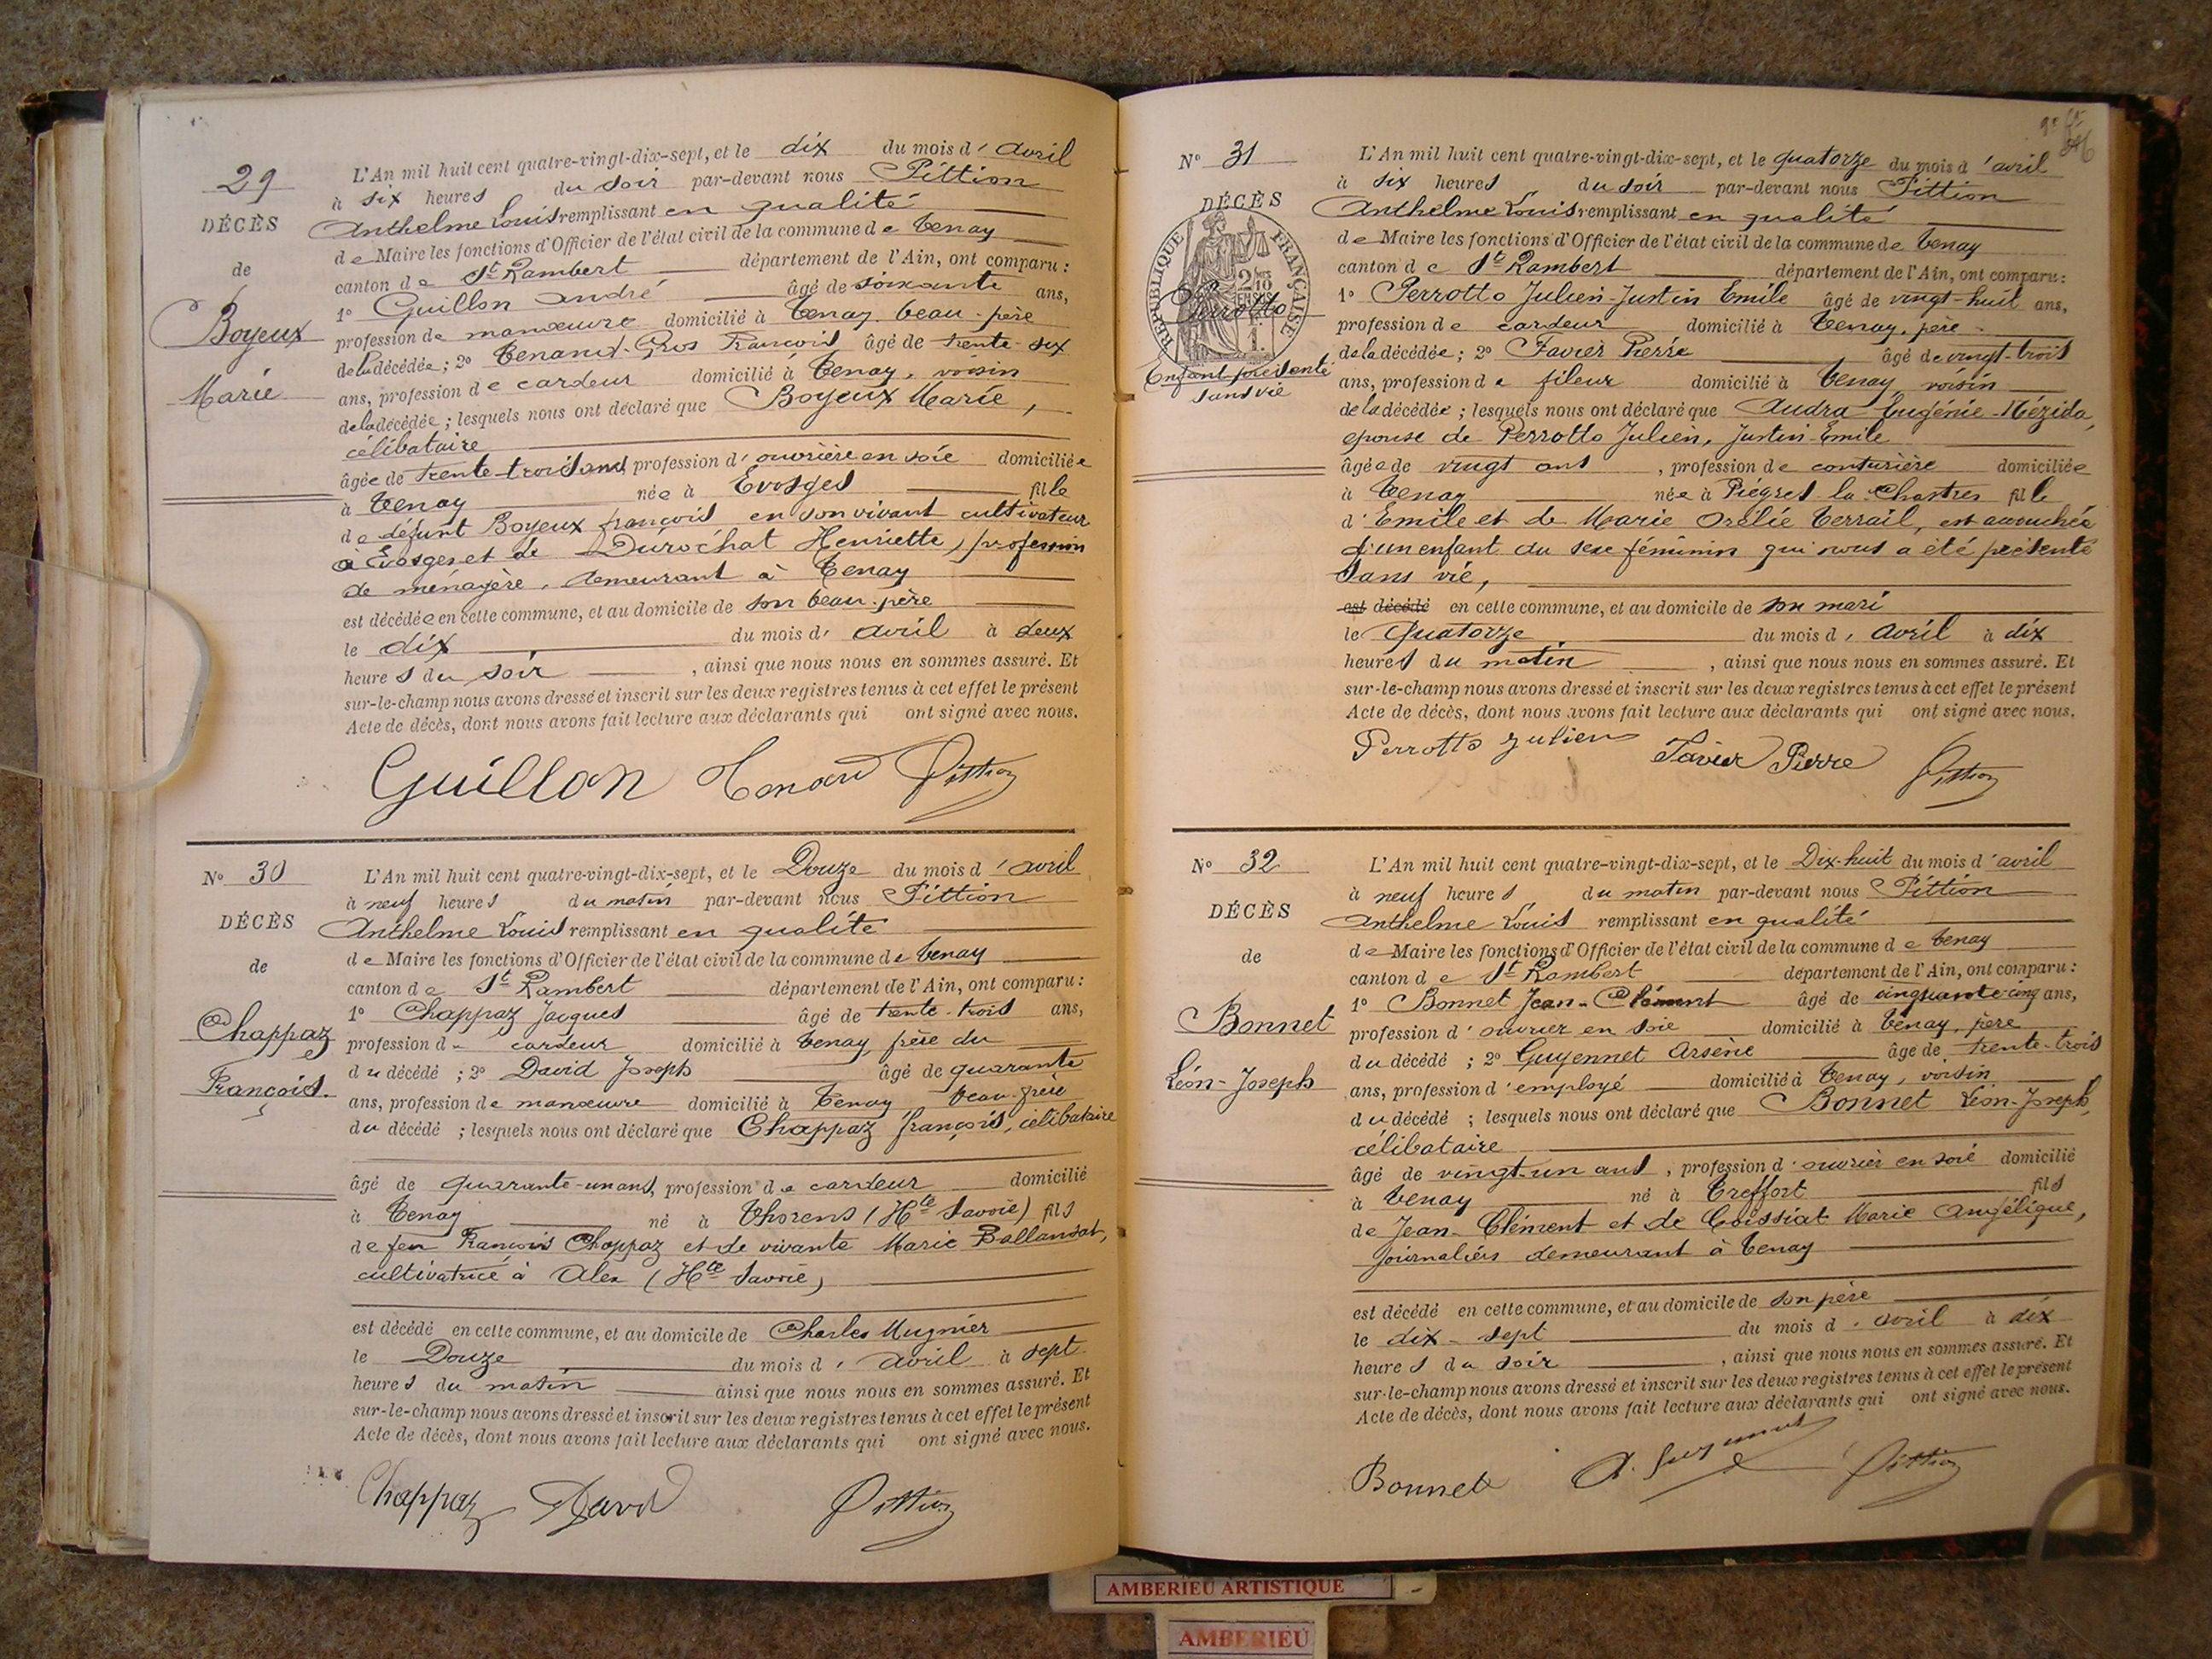 29
DÉCÈS
de
Boyeux
Marie
L'An mil huit cent quatre-vingt-dix-sept, et le dix du mois d'avril
à six heures du soir par-devant nous Pittion
Anthelme Louis remplissant en qualité
de Maire les fonctions d'Officier de l'état civil de la commune de Tenay
canton de St Rambert département de l'Ain, ont comparu :
1° Guillon André âgé de soixante ans,
profession de manœuvre domicilié à Tenay, beau-père
de la décédée ; 2° Tenand-Gros François âgé de trente-six
ans, profession de cardeur domicilié à Tenay, voisin
de la décédée ; lesquels nous ont déclaré que Boyeux Marie,
célibataire
âgée de trente-trois ans, profession d'ouvrière en soie domiciliée
à Tenay née à Evosges fille
de défunt Boyeux françois en son vivant cultivateur
à Evosges et de Durochat Henriette, profession
de ménagère, demeurant à Tenay
est décédée en cette commune, et au domicile de son beau-père
le dix du mois d'avril à deux
heures du soir, ainsi que nous nous en sommes assuré. Et
sur-le-champ nous avons dressé et inscrit sur les deux registres tenus à cet effet le présent
Acte de décès, dont nous avons fait lecture aux déclarants qui ont signé avec nous.
Guillon Tenand Pittion
N° 30
DÉCÈS
de
Chappaz
François.
L'An mil huit cent quatre-vingt-dix-sept, et le Douze du mois d'avril
à neuf heures du matin par-devant nous Pittion
Anthelme Louis remplissant en qualité
de Maire les fonctions d'Officier de l'état civil de la commune de Tenay
canton de St Rambert département de l'Ain, ont comparu :
1° Chappaz Jacques âgé de trente-trois ans,
profession de cardeur domicilié à Tenay, frère du
du décédé ; 2° David Joseph âgé de quarante
ans, profession de manœuvre domicilié à Tenay beau-frère
du décédé ; lesquels nous ont déclaré que Chappaz françois, célibataire
âgé de quarante-un ans, profession de cardeur domicilié
à Tenay né à Thorens (Hte Savoie) fils
de feu François Chappaz et de vivante Marie Ballansat,
cultivatrice à Alex (Hte Savoie)
est décédé en cette commune, et au domicile de Charles Mugnier
le Douze du mois d'avril à sept
heures du matin ainsi que nous nous en sommes assuré. Et
sur-le-champ nous avons dressé et inscrit sur les deux registres tenus à cet effet le présent
Acte de décès, dont nous avons fait lecture aux déclarants qui ont signé avec nous.
Chappaz David Pittion
N° 31
DÉCÈS
RÉPUBLIQUE FRANÇAISE
Perrotto
Enfant présenté
sans vie
L'An mil huit cent quatre-vingt-dix-sept, et le quatorze du mois d'avril
à six heures du soir par-devant nous Pittion
Anthelme Louis remplissant en qualité
de Maire les fonctions d'Officier de l'état civil de la commune de Tenay
canton de St Rambert département de l'Ain, ont comparu :
1° Perrotto Julien-Justin Emile âgé de vingt-huit ans,
profession de cardeur domicilié à Tenay, père
de la décédée ; 2° Favier Pierre âgé de vingt-trois
ans, profession de fileur domicilié à Tenay, voisin
de la décédée ; lesquels nous ont déclaré que Audra Eugénie-Mézida,
épouse de Perrotto Julien, Justin-Emile
âgée de vingt ans, profession de couturière domiciliée
à Tenay née à Piégros-la-Chastres fille
d'Emile et de Marie Orélie Terrail, est accouchée
d'un enfant du sexe féminin qui nous a été présenté
sans vie,
est décédé en cette commune, et au domicile de son mari
le Quatorze du mois d'avril à dix
heures du matin, ainsi que nous nous en sommes assuré. Et
sur-le-champ nous avons dressé et inscrit sur les deux registres tenus à cet effet le présent
Acte de décès, dont nous avons fait lecture aux déclarants qui ont signé avec nous.
Perrotto Julien Favier Pierre Pittion
N° 32
DÉCÈS
de
Bonnet
Léon-Joseph
L'An mil huit cent quatre-vingt-dix-sept, et le Dix-huit du mois d'avril
à neuf heures du matin par-devant nous Pittion
Anthelme Louis remplissant en qualité
de Maire les fonctions d'Officier de l'état civil de la commune de Tenay
canton de St Rambert département de l'Ain, ont comparu :
1° Bonnet Jean-Clément âgé de cinquante-cinq ans,
profession d'ouvrier en soie domicilié à Tenay, père
du décédé ; 2° Guyennet Arsène âgé de trente-trois
ans, profession d'employé domicilié à Tenay, voisin
du décédé ; lesquels nous ont déclaré que Bonnet Léon-Joseph,
célibataire
âgé de vingt-un ans, profession d'ouvrier en soie domicilié
à Tenay né à Treffort fils
de Jean-Clément et de Goissiat Marie Angélique,
journaliers demeurant à Tenay
est décédé en cette commune, et au domicile de son père
le dix-sept du mois d'avril à dix
heures du soir, ainsi que nous nous en sommes assuré. Et
sur-le-champ nous avons dressé et inscrit sur les deux registres tenus à cet effet le présent
Acte de décès, dont nous avons fait lecture aux déclarants qui ont signé avec nous.
Bonnet A. Guyennet Pittion
AMBERIEU ARTISTIQUE
AMBERIEU